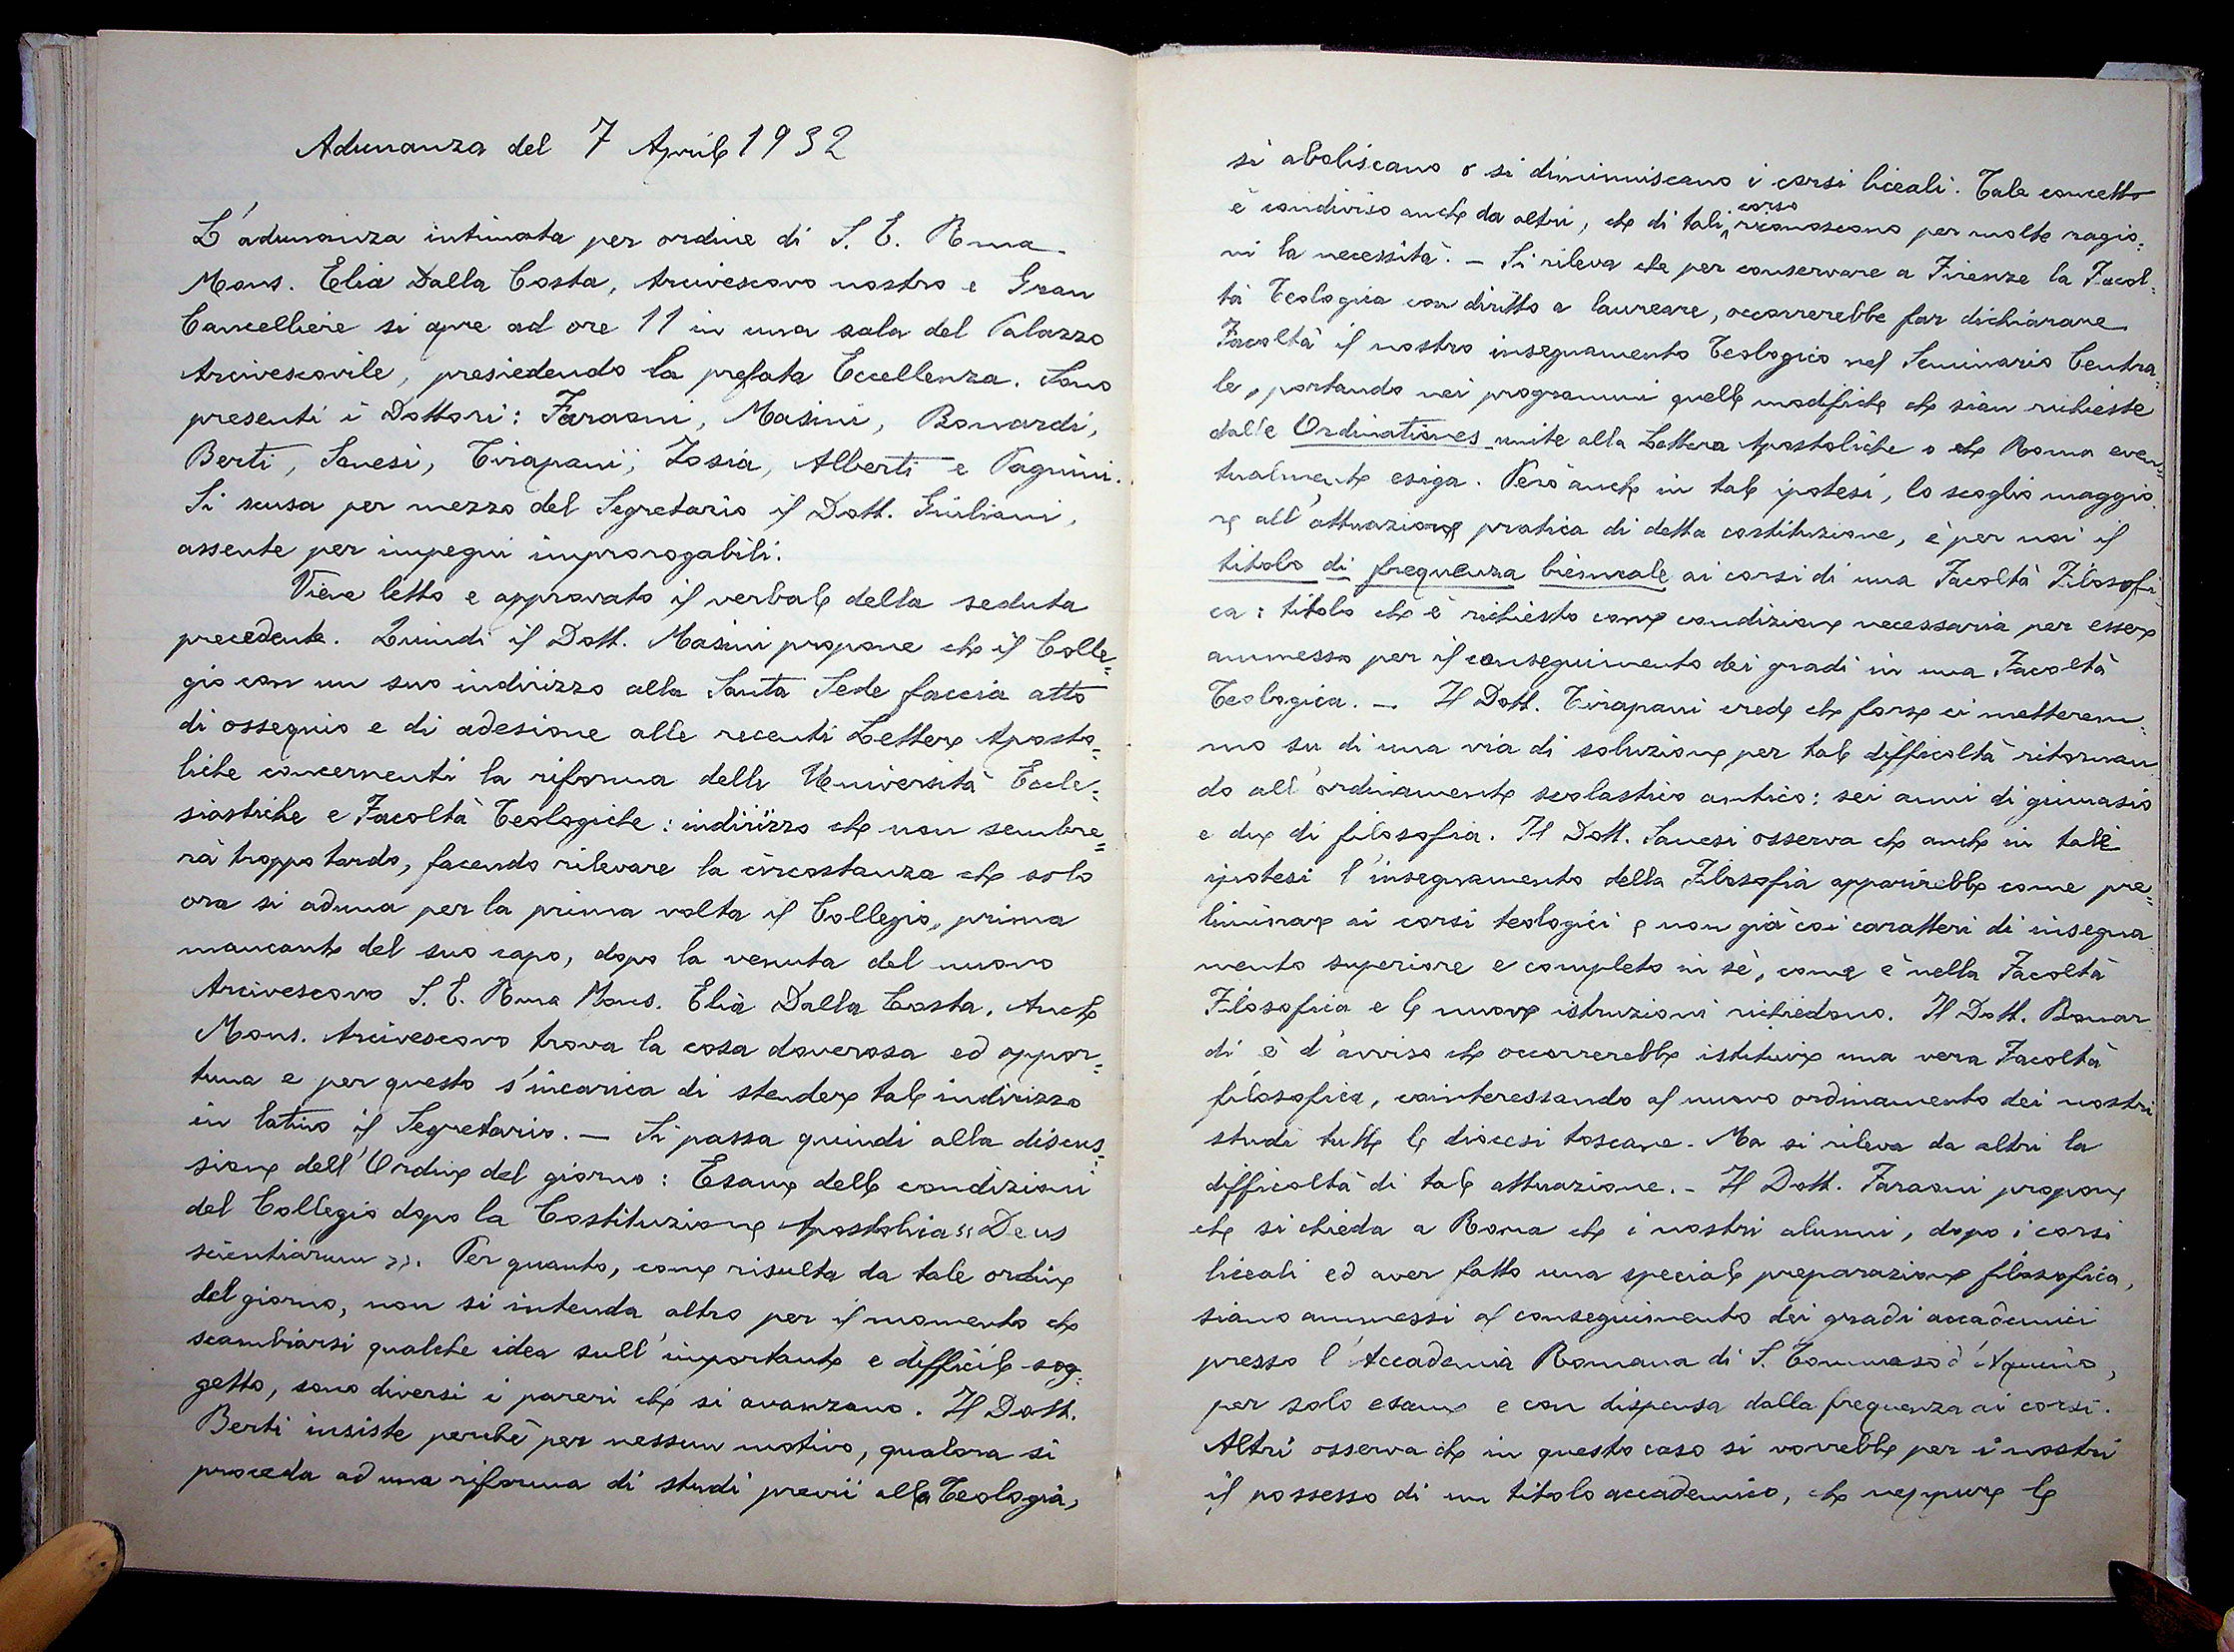 Adunanza del 7 Aprile 1932
L'adunanza intimata per ordine di S. E. Rma
Mons. Elia Dalla Costa, Arcivescovo nostro e Gran
Cancelliere si apre ad ore 11 in una sala del Palazzo
Arcivescovile, presiedendo la prefata Eccellenza. Sono
presenti i Dottori: Faraoni, Masini, Bonardi,
Berti, Sanesi, Tirapani, Zosia, Alberti e Pagnini.
Si scusa per mezzo del Segretario il Dott. Giuliani,
assente per impegni improrogabili.
Viene letto e approvato il verbale della seduta
precedente. Quindi il Dott. Masini propone che il Colle=
gio con un suo indirizzo alla Santa Sede faccia atto
di ossequio e di adesione alle recenti Lettere Aposto=
liche concernenti la riforma delle Università Eccle=
siastiche e Facoltà Teologiche: indirizzo che non sembre=
rà troppo tardo, facendo rilevare la circostanza che solo
ora si aduna per la prima volta il Collegio, prima
mancante del suo capo, dopo la venuta del nuovo
Arcivescovo S. E. Rma Mons. Elia Dalla Costa. Anche
Mons. Arcivescovo trova la cosa doverosa ed oppor=
tuna e per questo s'incarica di stendere tale indirizzo
in latino il Segretario. — Si passa quindi alla discus=
sione dell'Ordine del giorno: Esame delle condizioni
del Collegio dopo la Costituzione Apostolica «Deus
scientiarum». Per quanto, come risulta da tale ordine
del giorno, non si intenda altro per il momento che
scambiarsi qualche idea sull'importante e difficile sog=
getto, sono diversi i pareri che si avanzano. Il Dott.
Berti insiste perchè per nessun motivo, qualora si
proceda ad una riforma di studi previi alla Teologia,
si aboliscano o si diminuiscano i corsi liceali. Tale concetto
corso
è condiviso anche da altri, che di tali riconoscono per molte ragio=
ni la necessità. — Si rileva che per conservare a Firenze la Facol=
tà Teologica con diritto a laureare, occorrerebbe far dichiarare
Facoltà il nostro insegnamento Teologico nel Seminario Centra=
le, portando nei programmi quelle modifiche che sian richieste
dalle Ordinationes unite alla Lettera Apostoliche o che Roma even=
tualmente esiga. Però anche in tale ipotesi, lo scoglio maggio=
re all'attuazione pratica di detta costituzione, è per noi il
titolo di frequenza biennale ai corsi di una Facoltà Filosofi=
ca: titolo che è richiesto come condizione necessaria per essere
ammesso per il conseguimento dei gradi in una Facoltà
Teologica. — Il Dott. Tirapani crede che forse ci metterem=
mo su di una via di soluzione per tale difficoltà ritornan
do all'ordinamento scolastico antico: sei anni di ginnasio
e due di filosofia. Il Dott. Sanesi osserva che anche in tale
ipotesi l'insegnamento della Filosofia apparirebbe come pre=
liminare ai corsi teologici e non già coi caratteri di insegna
mento superiore e completo in sè, come è nella Facoltà
Filosofica e le nuove istruzioni richiedono. Il Dott. Bonar
di è d'avviso che occorrerebbe istituire una vera Facoltà
filosofica, cointeressando al nuovo ordinamento dei nostri
studi tutte le diocesi toscane. Ma si rileva da altri la
difficoltà di tale attuazione. — Il Dott. Faraoni propone
che si chieda a Roma che i nostri alunni, dopo i corsi
liceali ed aver fatto una speciale preparazione filosofica,
siano ammessi al conseguimento dei gradi accademici
presso l'Accademia Romana di S. Tommaso d'Aquino,
per solo esame e con dispensa dalla frequenza ai corsi.
Altri osserva che in questo caso si vorrebbe per i nostri
il possesso di un titolo accademico, che neppure le